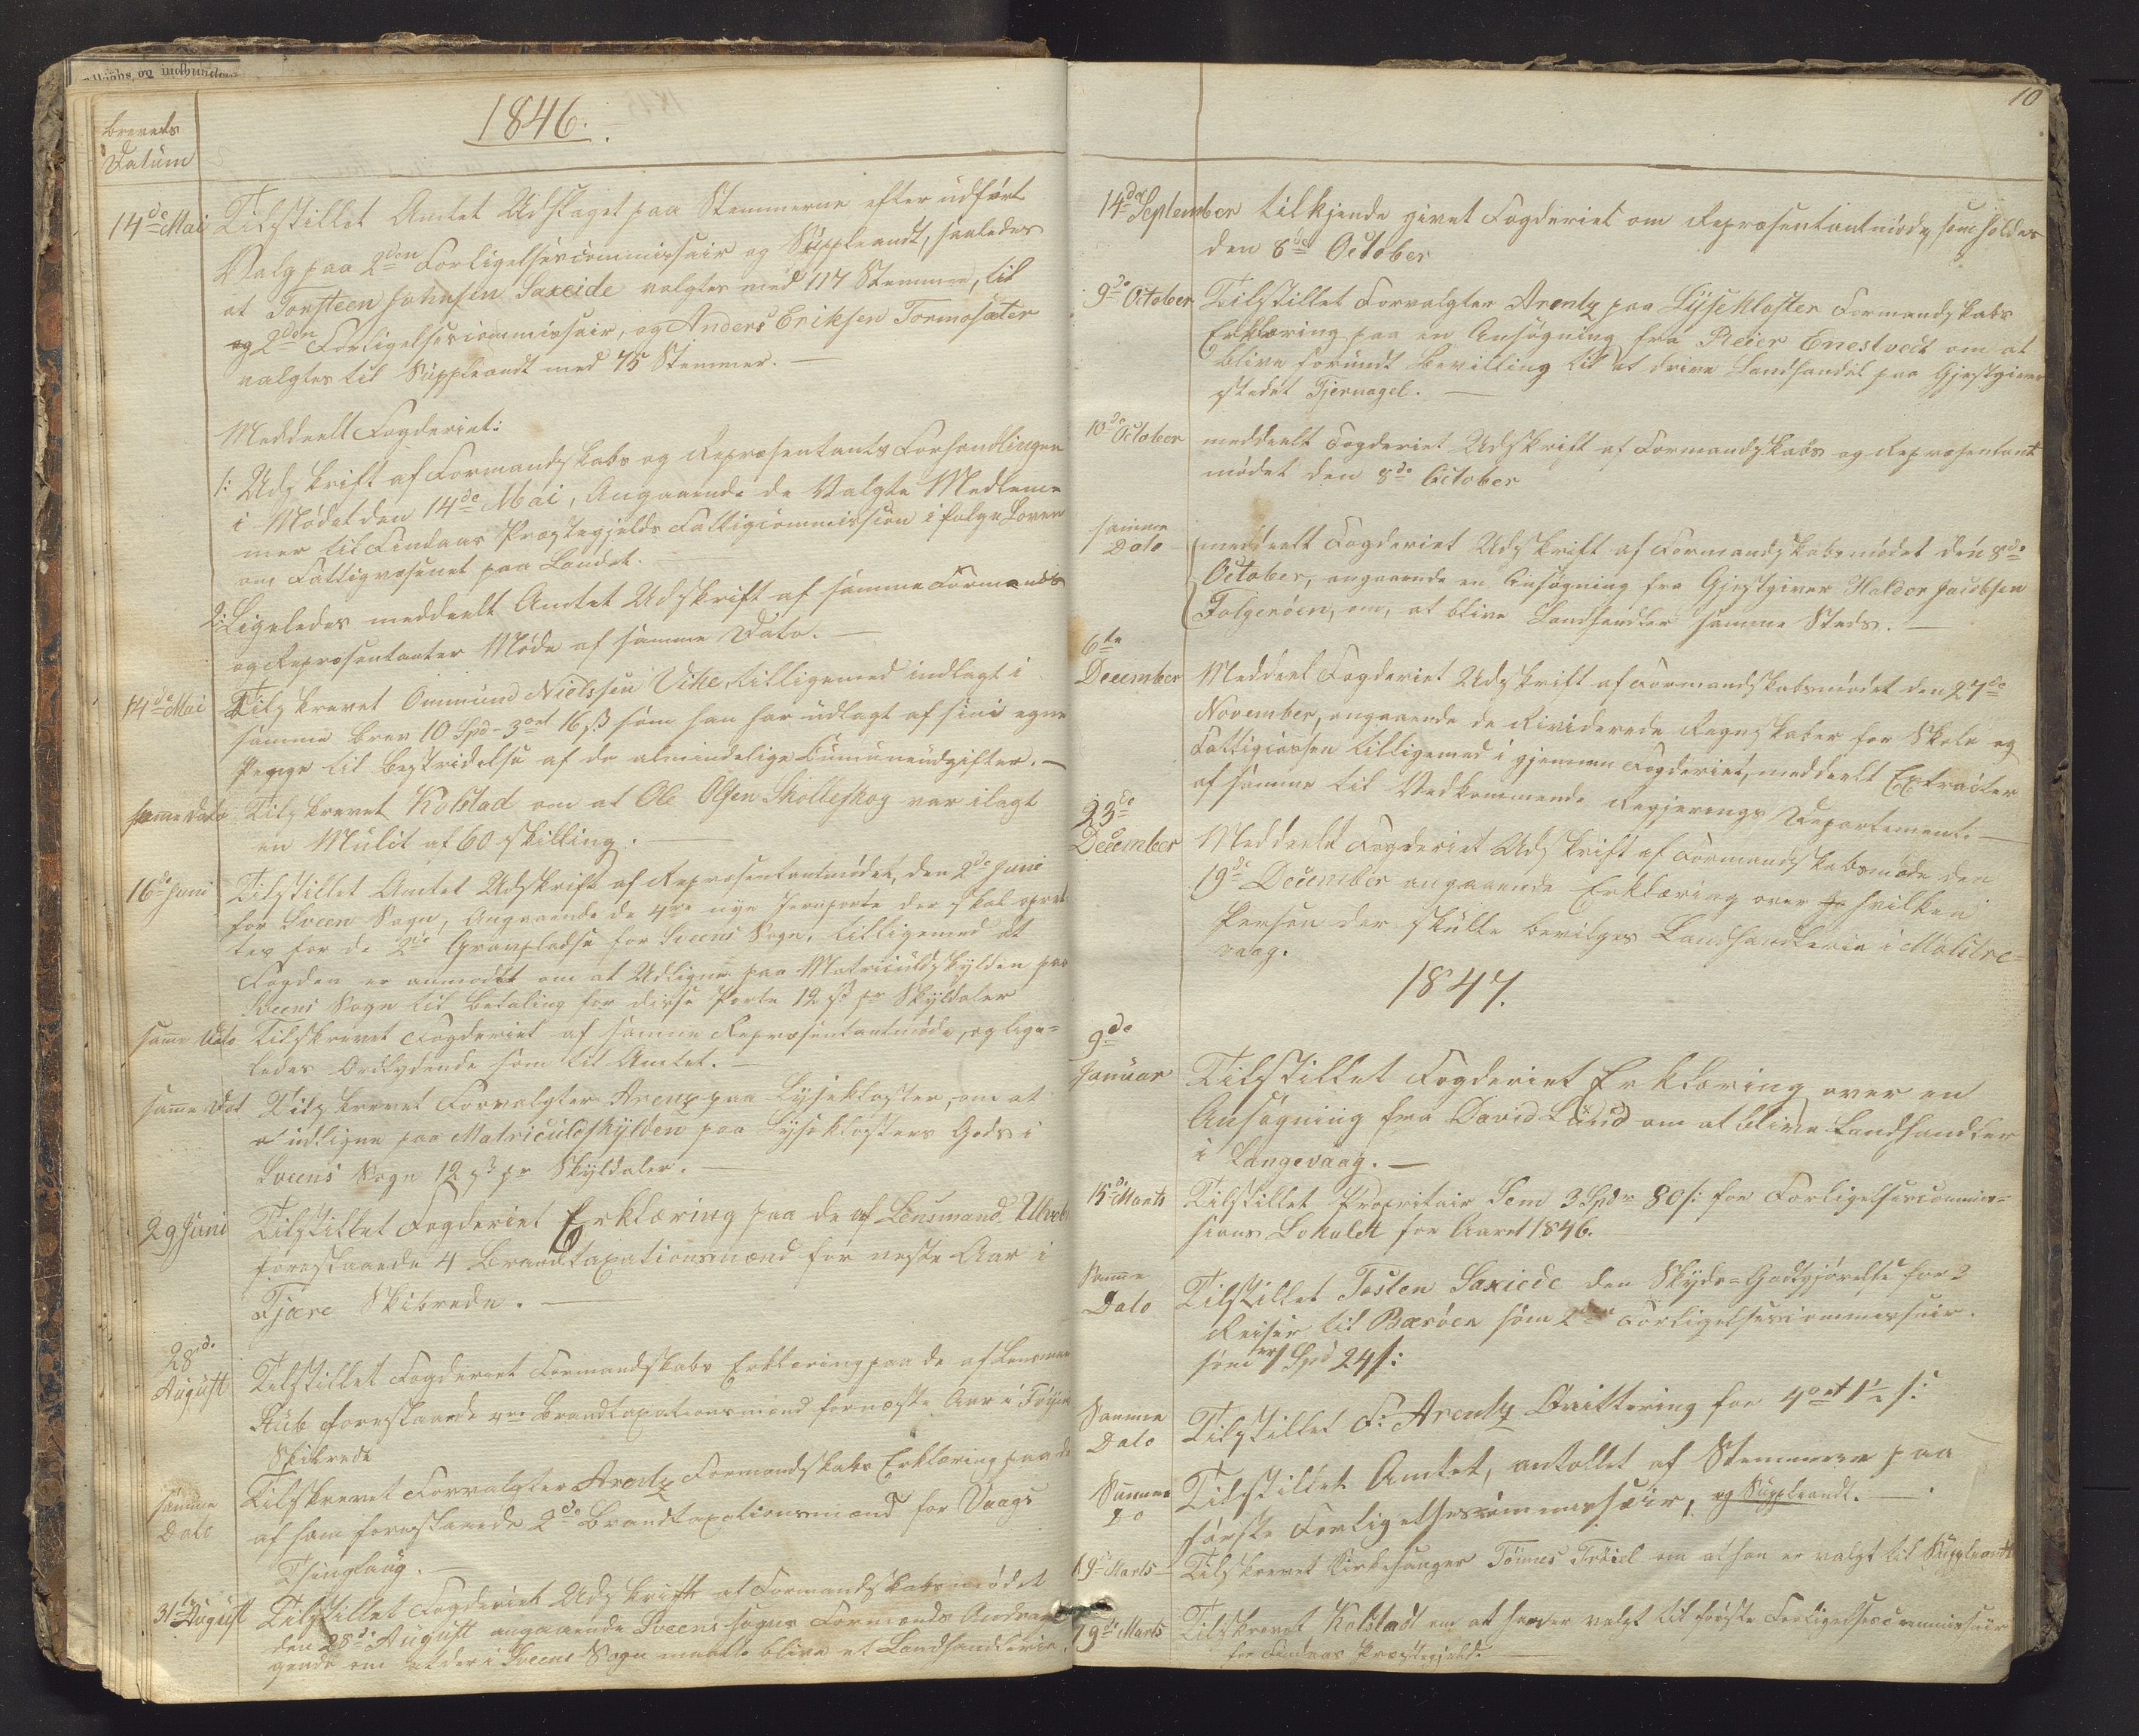 Brevets
Datum
1846.
14de Mai Tilstillet Amtet Udslaget paa Stemmerne efter udført
Valg paa 2den Forligelsescommissair og Suppleandt, saaledes
at Torsteen Johnsen Saxeide valgtes med 117 Stemmer, til
og 2den Forligelsescommissair, og Anders Eriksen Tormosæter
valgtes til Suppleandt med 75 Stemmer. —
Meddeelt Fogderiet:
1: Udskrift af Formandskabs og Repræsentants Forhandlingen
i Mødet den 14de Mai, Angaaende de Valgte Medlem-
mer til Findaas Præstegjelds Fattigcommission i følge Loven
om Fattigvæsenet paa Landet. —
2: Ligeledes meddeelt Amtet Udskrift af samme Formands
og Repræsentanter Møde af samme Dato. —
14de Mai Tilskrevet Ommund Nielssen Vike, tilligemed indlagt i
samme Brev 10 Spd - 3 ort 16 s som han har udlagt af sine egne
Penge til Bestridelse af de almindelige Cumuneudgifter. —
samme Dato Tilskrevet Kolstad om at Ole Olsen Skolleskog var ilagt
en Mulct af 60 skilling. —
16de Juni Tilstillet Amtet Udskrift af Repræsentantmødet, den 2de Juni
for Sveen Sogn, Angaaende de 4re nye Jernporte der skal opret-
tes for de 2de Gravpladse for Sveens Sogn, tilligemed at
Fogden er anmodet om at Udligne paa Matriculskylden paa
Sveens Sogn til Betaling for disse Porte 12 s pr Skyldaler
samme Dato Tilskrevet Fogderiet af samme Repræsentantmøde, og lige-
ledes Ordlydende som til Amtet. —
samme Dat Tilskrevet Forvalgter Arentz paa Lysekloster, om at
udligne paa Matriculskylden paa Lyseklosters Gods i
Sveens Sogn 12 s pr Skyldaler. —
29 Juni Tilstillet Fogderiet Erklæring paa de af Lensmand
foreslaaede 4 Brandtaxationsmænd for neste Aar i
Fjære Skibrede. —
28de
August Tilstillet Fogderiet Formandskabs Erklæring paa de af Lensman
Rub foreslaaede Brandtaxationsmænd for næste Aar i
Skibrede
samme
Dato Tilskrevet Forvalgter Arentz Formandskabs Erklæring paa de
af ham foreslaaede 2de Brandtaxationsmænd for Vaags
Thinglaug. —
31te August Tilstillet Fogderiet Udskrift af Formandskabsmødet
den 28de August angaaende Sveens sogns Formænds
om at der i Sveens Sogn maatte blive et Landhandlerie
10
14de September tilkjende givet Fogderiet om Repræsentantmøde, som holdes
den 8de October
9de October Tilstillet Forvalgter Arentz paa Lysekloster Formandskabs
Erklæring paa en Ansøgning fra Reier Enestvedt om at
blive forundt Bevilling til at drive Landhandel paa Gjestgiver
stedet Tjernagel. —
10de October meddeelt Fogderiet Udskrift af Formandskabs og Repræsentant
mødet den 8de October
samme
Dato meddeelt Fogderiet Udskrift af Formandskabsmødet den 8de
October, angaaende en Ansøgning fra Gjestgiver Haldor Jacobsen
Folgerøen, om, at blive Landhandler samme Steds. —
6te
December Meddeelt Fogderiet Udskrift af Formandskabsmødet den 27de
November, angaaende de Reviderede Regnskaber for Skole og
Fattigcassen tilligemed i gjennem Fogderiet, meddeelt Extracter
af samme til Vedkommende Regjerings Departement. —
23de
December Meddeelt Fogderiet Udskrift af Formandskabsmøde den
19de December angaaende Erklæring over hvilken
Person der skulle bevilges Landhandlerie i Mølstre-
vaag.
1847.
9de
Januar Tilstillet Fogderiet Erklæring over en
Ansøgning fra David Lund om at blive Landhandler
i Langevaag. —
15de Marts Tilstillet Propritair Sem 3 Spdr 80 s: for Forligelsescommis-
sions Lokalet for Aaret 1846.
Samme
Dato Tilstillet Tosten Saxiede den Skyds-Godtgjørelse for 2
Reiser til Bærøen som 2den Forligelsescommissair.
som er 1 Spd 24 s:
Samme
Dato Tilstillet F: Arentz Qvittering for 4 ort 1½ s:
Samme
Do Tilstillet Amtet, antallet af Stemmerne paa
første Forligelsescommissair, og Suppleandt. —
19de Marts Tilskrevet Kirkesanger Tönnes om at han er valgt til Suppleandt
19de Marts Tilskrevet Kolstad om at han er valgt til første Forligelsescommissair
for Findaas Præstegjeld. —